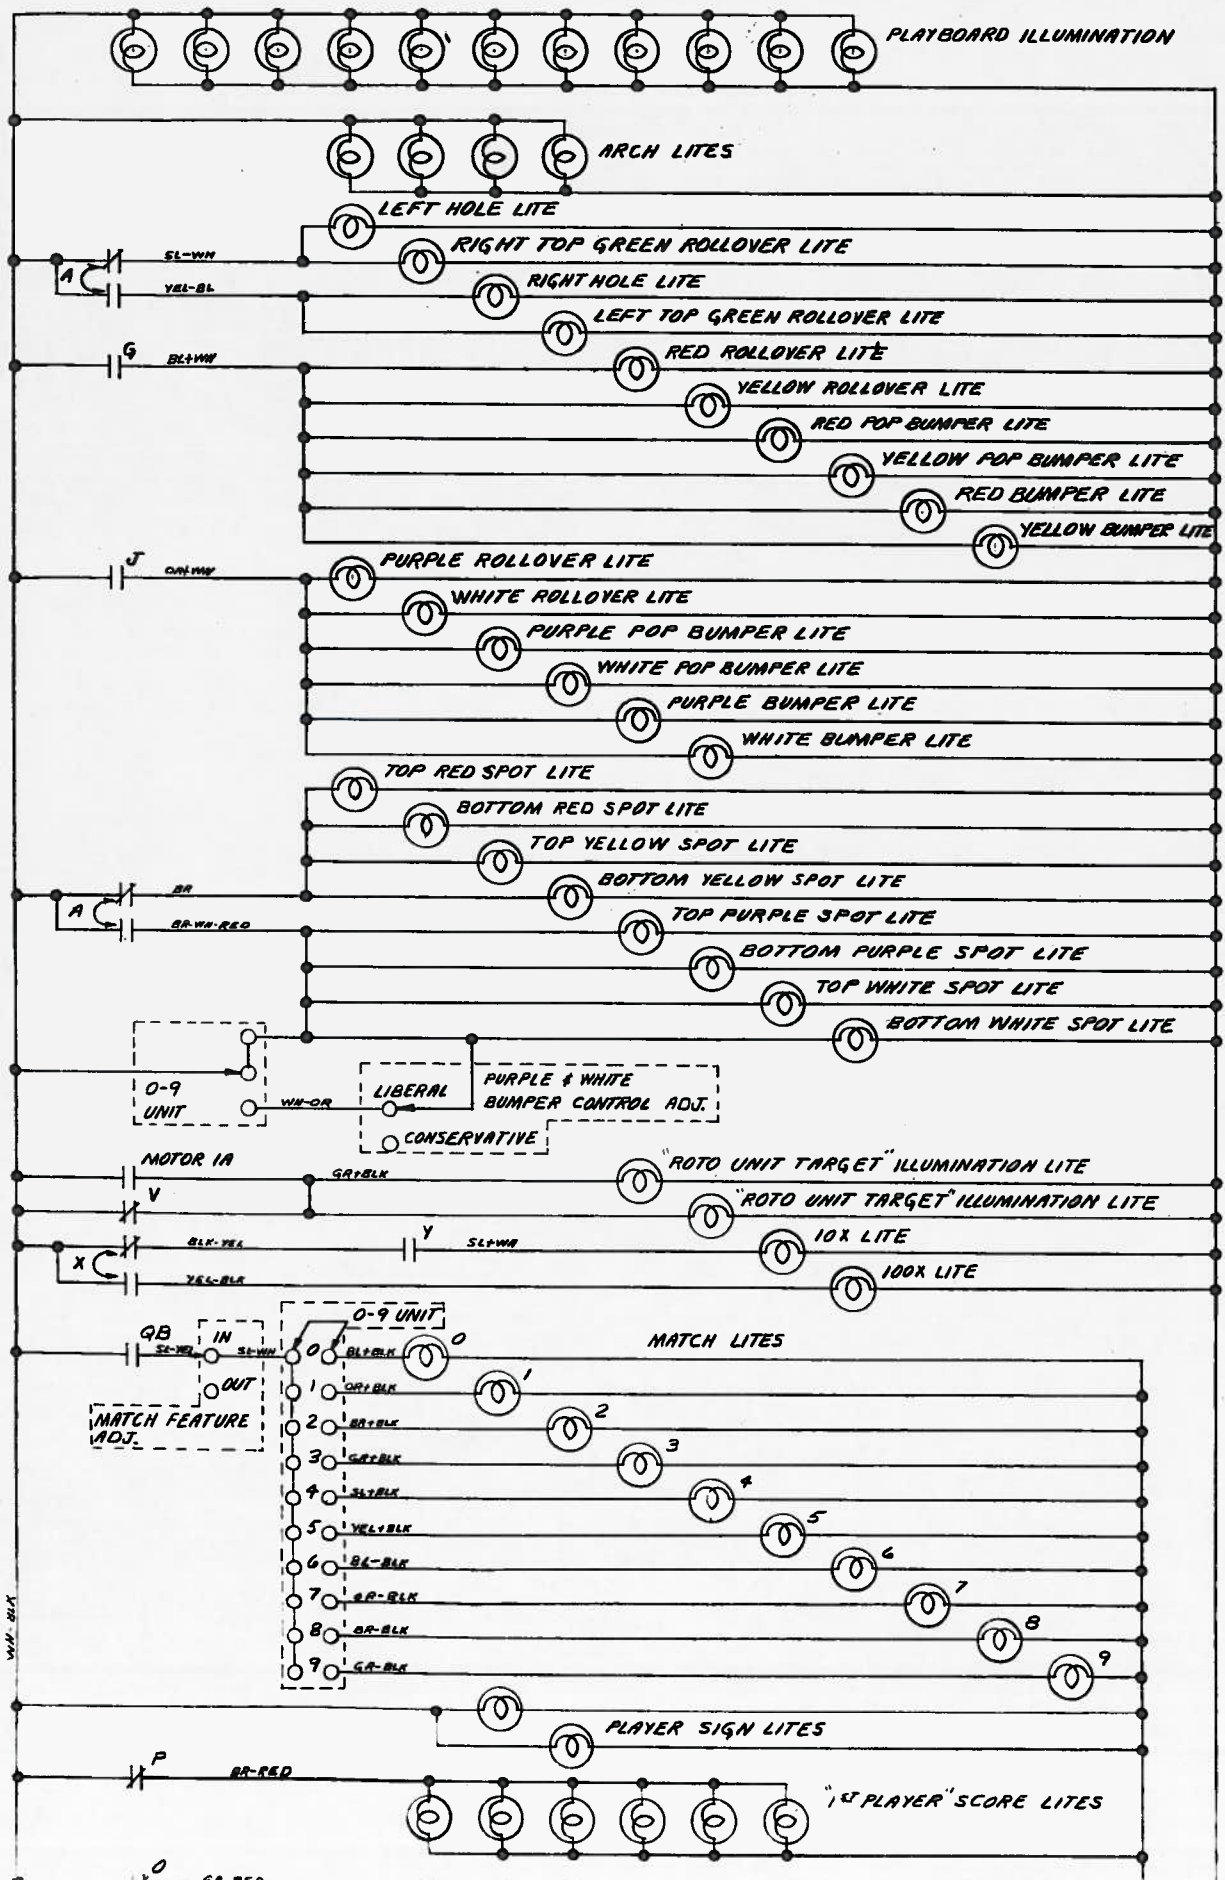 PLAYBOARD ILLUMINATION
ARCH LITES
LEFT HOLE LITE
SL-WH
RIGHT TOP GREEN ROLLOVER LITE
A
YEL-BL
RIGHT HOLE LITE
LEFT TOP GREEN ROLLOVER LITE
G
BL+WH
RED ROLLOVER LITE
YELLOW ROLLOVER LITE
RED POP BUMPER LITE
YELLOW POP BUMPER LITE
RED BUMPER LITE
YELLOW BUMPER LITE
J
OR+WH
PURPLE ROLLOVER LITE
WHITE ROLLOVER LITE
PURPLE POP BUMPER LITE
WHITE POP BUMPER LITE
PURPLE BUMPER LITE
WHITE BUMPER LITE
TOP RED SPOT LITE
BOTTOM RED SPOT LITE
TOP YELLOW SPOT LITE
BR
BOTTOM YELLOW SPOT LITE
A
BR-WH-RED
TOP PURPLE SPOT LITE
BOTTOM PURPLE SPOT LITE
TOP WHITE SPOT LITE
BOTTOM WHITE SPOT LITE
0-9
UNIT
WH-OR
LIBERAL
PURPLE & WHITE
BUMPER CONTROL ADJ.
CONSERVATIVE
MOTOR 1A
GR+BLK
"ROTO UNIT TARGET" ILLUMINATION LITE
V
"ROTO UNIT TARGET" ILLUMINATION LITE
X
BLK-YEL
Y
SL+WH
10X LITE
YEL-BLK
100X LITE
0-9 UNIT
QB
SL-YEL
IN
SL-WH
OUT
MATCH FEATURE
ADJ.
MATCH LITES
0 BL+BLK 0
1 OR+BLK 1
2 BR+BLK 2
3 GR+BLK 3
4 SL+BLK 4
5 YEL+BLK 5
6 BL-BLK 6
7 OR-BLK 7
8 BR-BLK 8
9 GR-BLK 9
WH-BLK
PLAYER SIGN LITES
P
BR-RED
"1ST PLAYER" SCORE LITES
O